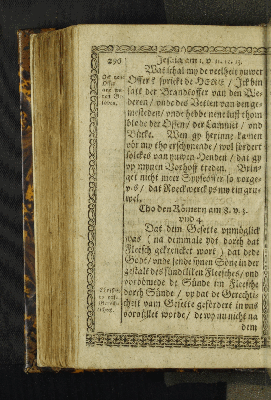 Jesaia am 1. v 11. 12. 13.
Wat schal my de veelheit juwer
Offer? sprickt de HERE / Ick bin
satt der Brandtoffer van den We-
deren / vnde des Vetten van den ge-
mesteden / vnde hebbe nene lust thom
blode der Ossen / der Lemmer / vnd
Bücke. Wen gy herinne kamen
vör my tho erschynende / wol fordert
solckes van juwen Henden / dat gy
vp mynen Vorhoff treden. Brin-
get nicht meer Spyßoffer so
dat Röckwerck ys my ein gru-
wel.
Tho den Römern am 8. v. 3.
vnd 4.
Dat dem Gesette vnmöglick
was (na demmale ydt dorch dat
Flesch gekrencket wort) dat dede
Godt / vnde sende synen Söne in der
gestalt des sündtliken Flesches / vnd
vordömede de Sünde im Flesche
dorch Sünde / vp dat de Gerechtic-
heit vam Gesette gefördert in vns
vorfüllet worde / de wy nu nicht na
dem